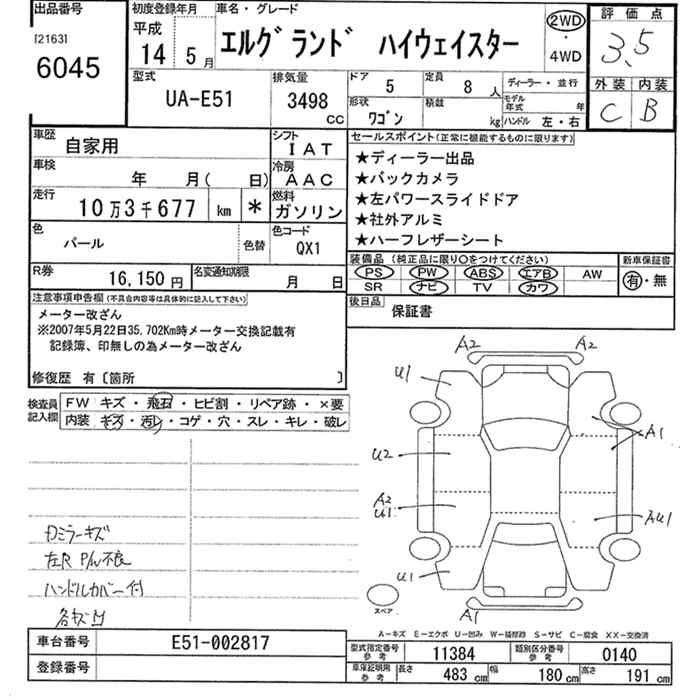 出品番号
[2163]
6045
初度登録年月
平成
14 5 月
車名・グレード
エルグランド ハイウェイスター
2WD
・
4WD
評価点
3.5
外装 内装
C B
型式
UA-E51
排気量
3498
CC
ドア
5
定員
8 人
ディーラー・並行
形状
ワゴン
積載
kg
モデル年式
年
ハンドル 左・右
車歴
自家用
シフト
IAT
車検
年 月( 日)
冷房
AAC
走行
10万3千677 km *
燃料
ガソリン
色
パール
色替
色コード
QX1
R券
16,150 円
名変通知期限
月 日
セールスポイント(正常に機能するものに限ります)
★ディーラー出品
★バックカメラ
★左パワースライドドア
★社外アルミ
★ハーフレザーシート
装備品(純正品に限り○をつけてください)
PS PW ABS エアB AW
SR ナビ TV カワ
新車保証書
有・無
後日品
保証書
注意事項申告欄(不具合内容等は具体的に記入して下さい)
メーター改ざん
※2007年5月22日35,702Km時メーター交換記載有
記録簿、印無しの為メーター改ざん
修復歴 有〔箇所 〕
検査員記入欄
FW キズ・飛石・ヒビ割・リペア跡・×要
内装 キズ・汚レ・コゲ・穴・スレ・キレ・破レ
A2 A2
U1
A1
U2
A2
U1
AU1
U1
A1
スペア
カミラーキズ
左R P/W不良
ハンドルカバー付
各キズ凹
A−キズ E−エクボ U−凹み W−補修跡 S−サビ C−腐食 XX−交換済
車台番号
E51-002817
登録番号
型式指定番号
参考
11384
類別区分番号
参考
0140
車庫証明用
参考
長さ
483 cm
幅
180 cm
高さ
191 cm